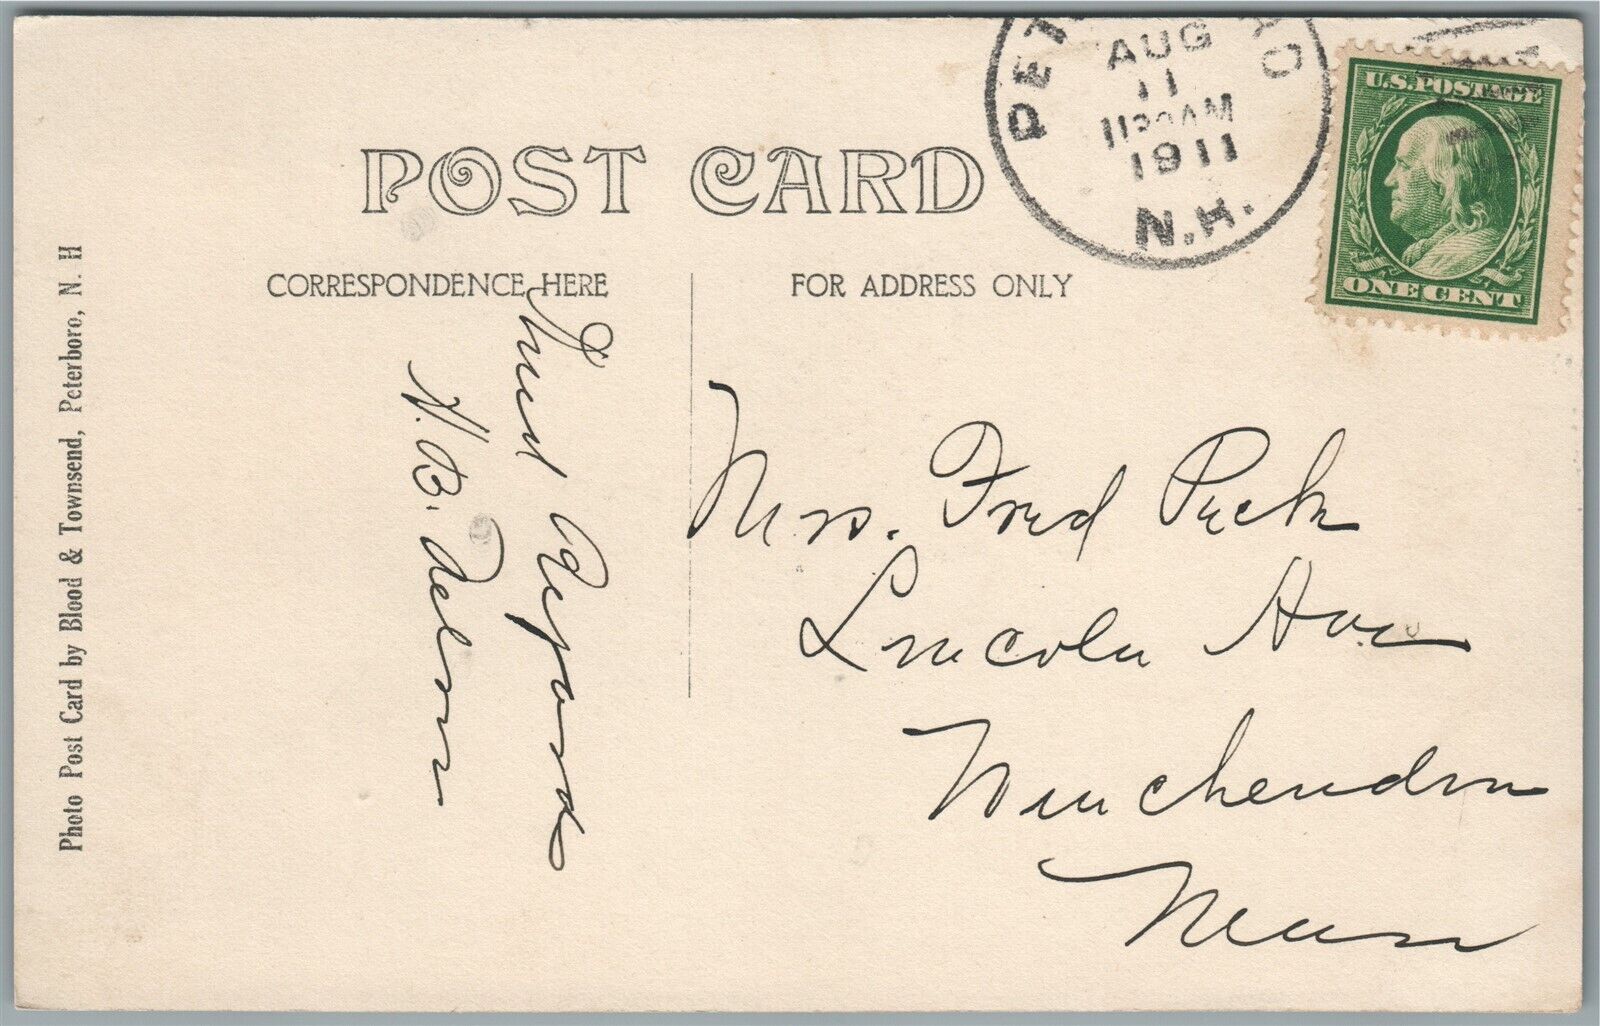 POST CARD
CORRESPONDENCE HERE
FOR ADDRESS ONLY
AUG
11
AM
1911
N.H.
U.S. POSTAGE
ONE CENT
Photo Post Card by Blood & Townsend, Peterboro, N. H
Kind Regards
H. B.
Mrs. Fred Peck
Lincoln Ave
Winchendon
Mass